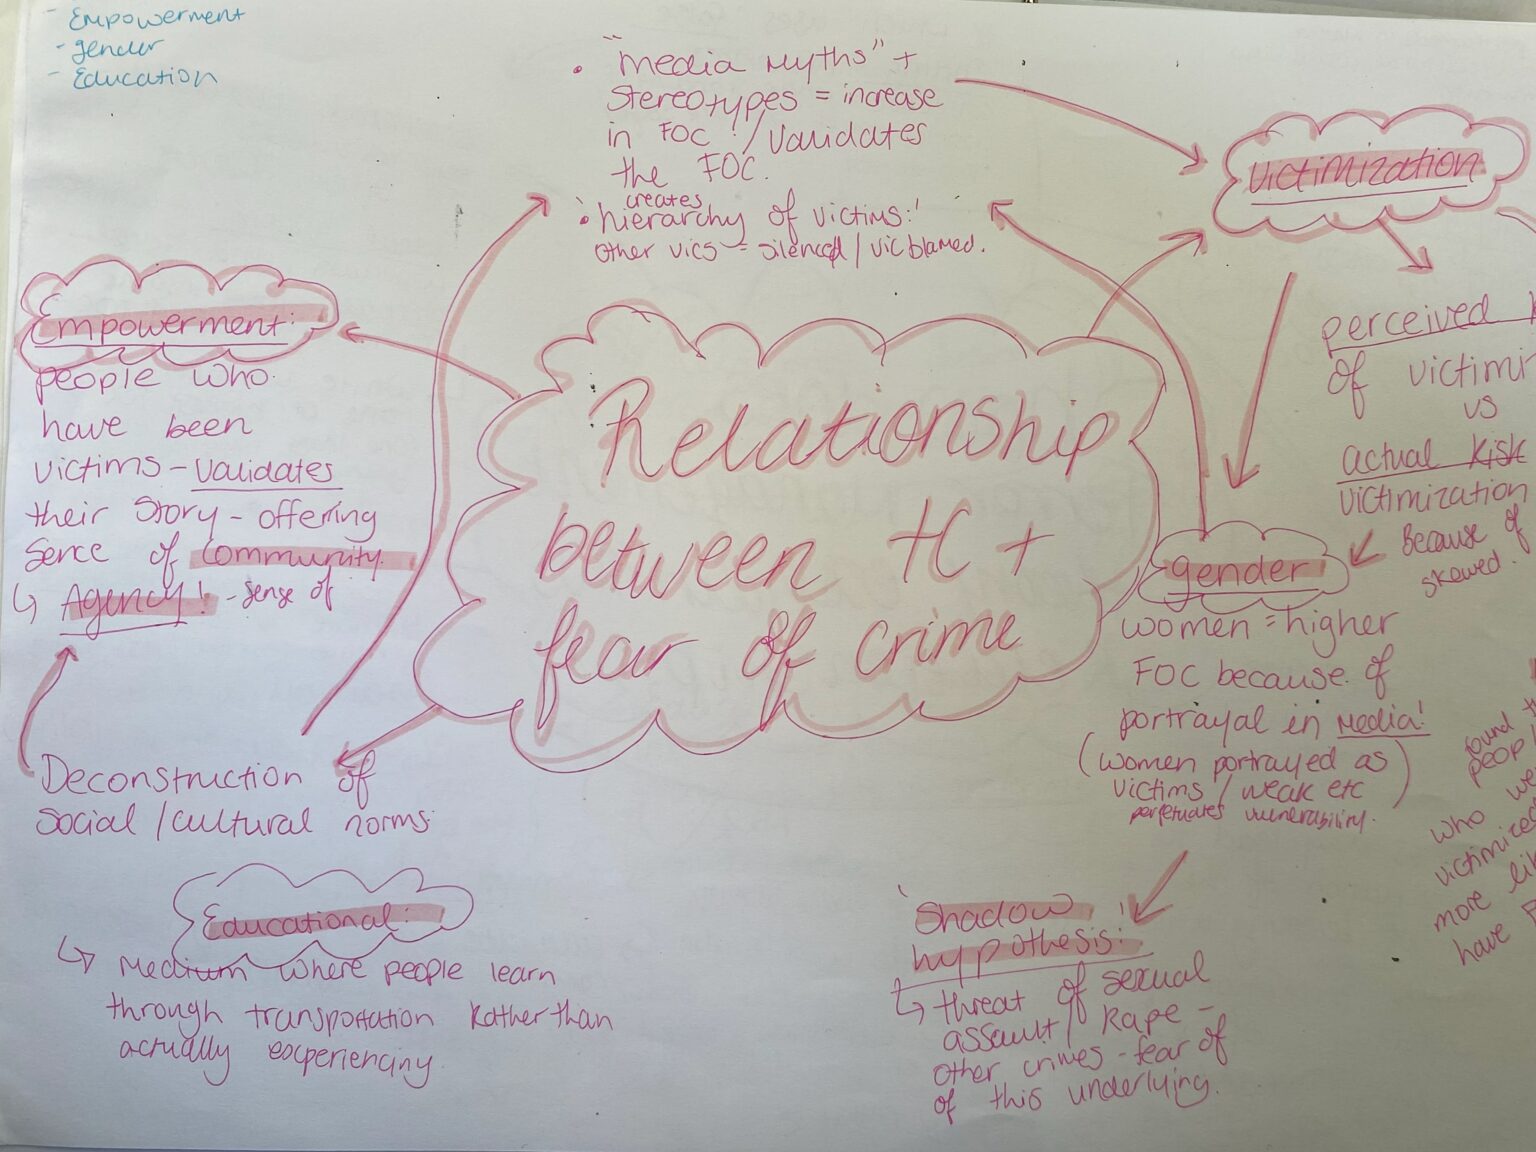 - Empowerment
- gender
- Education
• "media myths" +
stereotypes = increase
in FOC / validates
the FOC.
creates
• 'hierarchy of victims:'
other vics = silenced / vic blamed.
Victimization
Empowerment:
people who
have been
victims - validates
their story - offering
sence of community.
↳ Agency! - sense of
Relationship
between tC +
fear of crime
perceived
of victimi
vs
actual Risk
victimization
Because of
skewed.
gender
women = higher
FOC because of
portrayal in media!
(women portrayed as
victims / weak etc)
perpetuates vulnerability.
Deconstruction of
social / cultural norms.
Educational:
↳ Medium where people learn
through transportation Rather than
actually experiencing
'Shadow
hypothesis:'
↳ threat of sexual
assault / Rape -
other crimes - fear of
of this underlying.
found
who
victimized
more
have